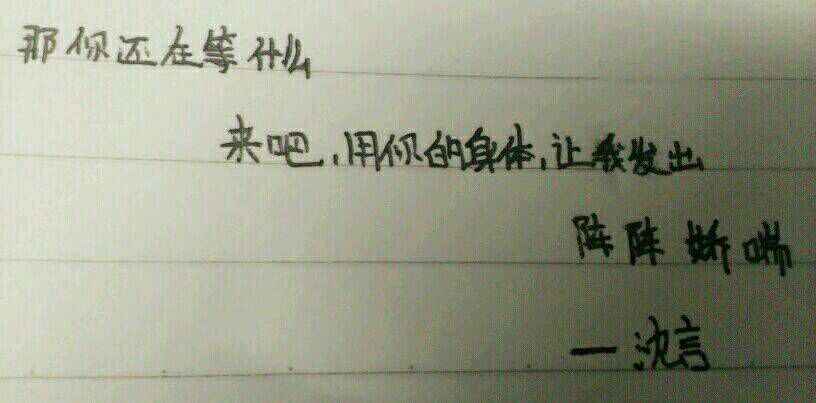 那你还在等什么
来吧,用你的身体,让我发出
阵阵娇喘
一沈言